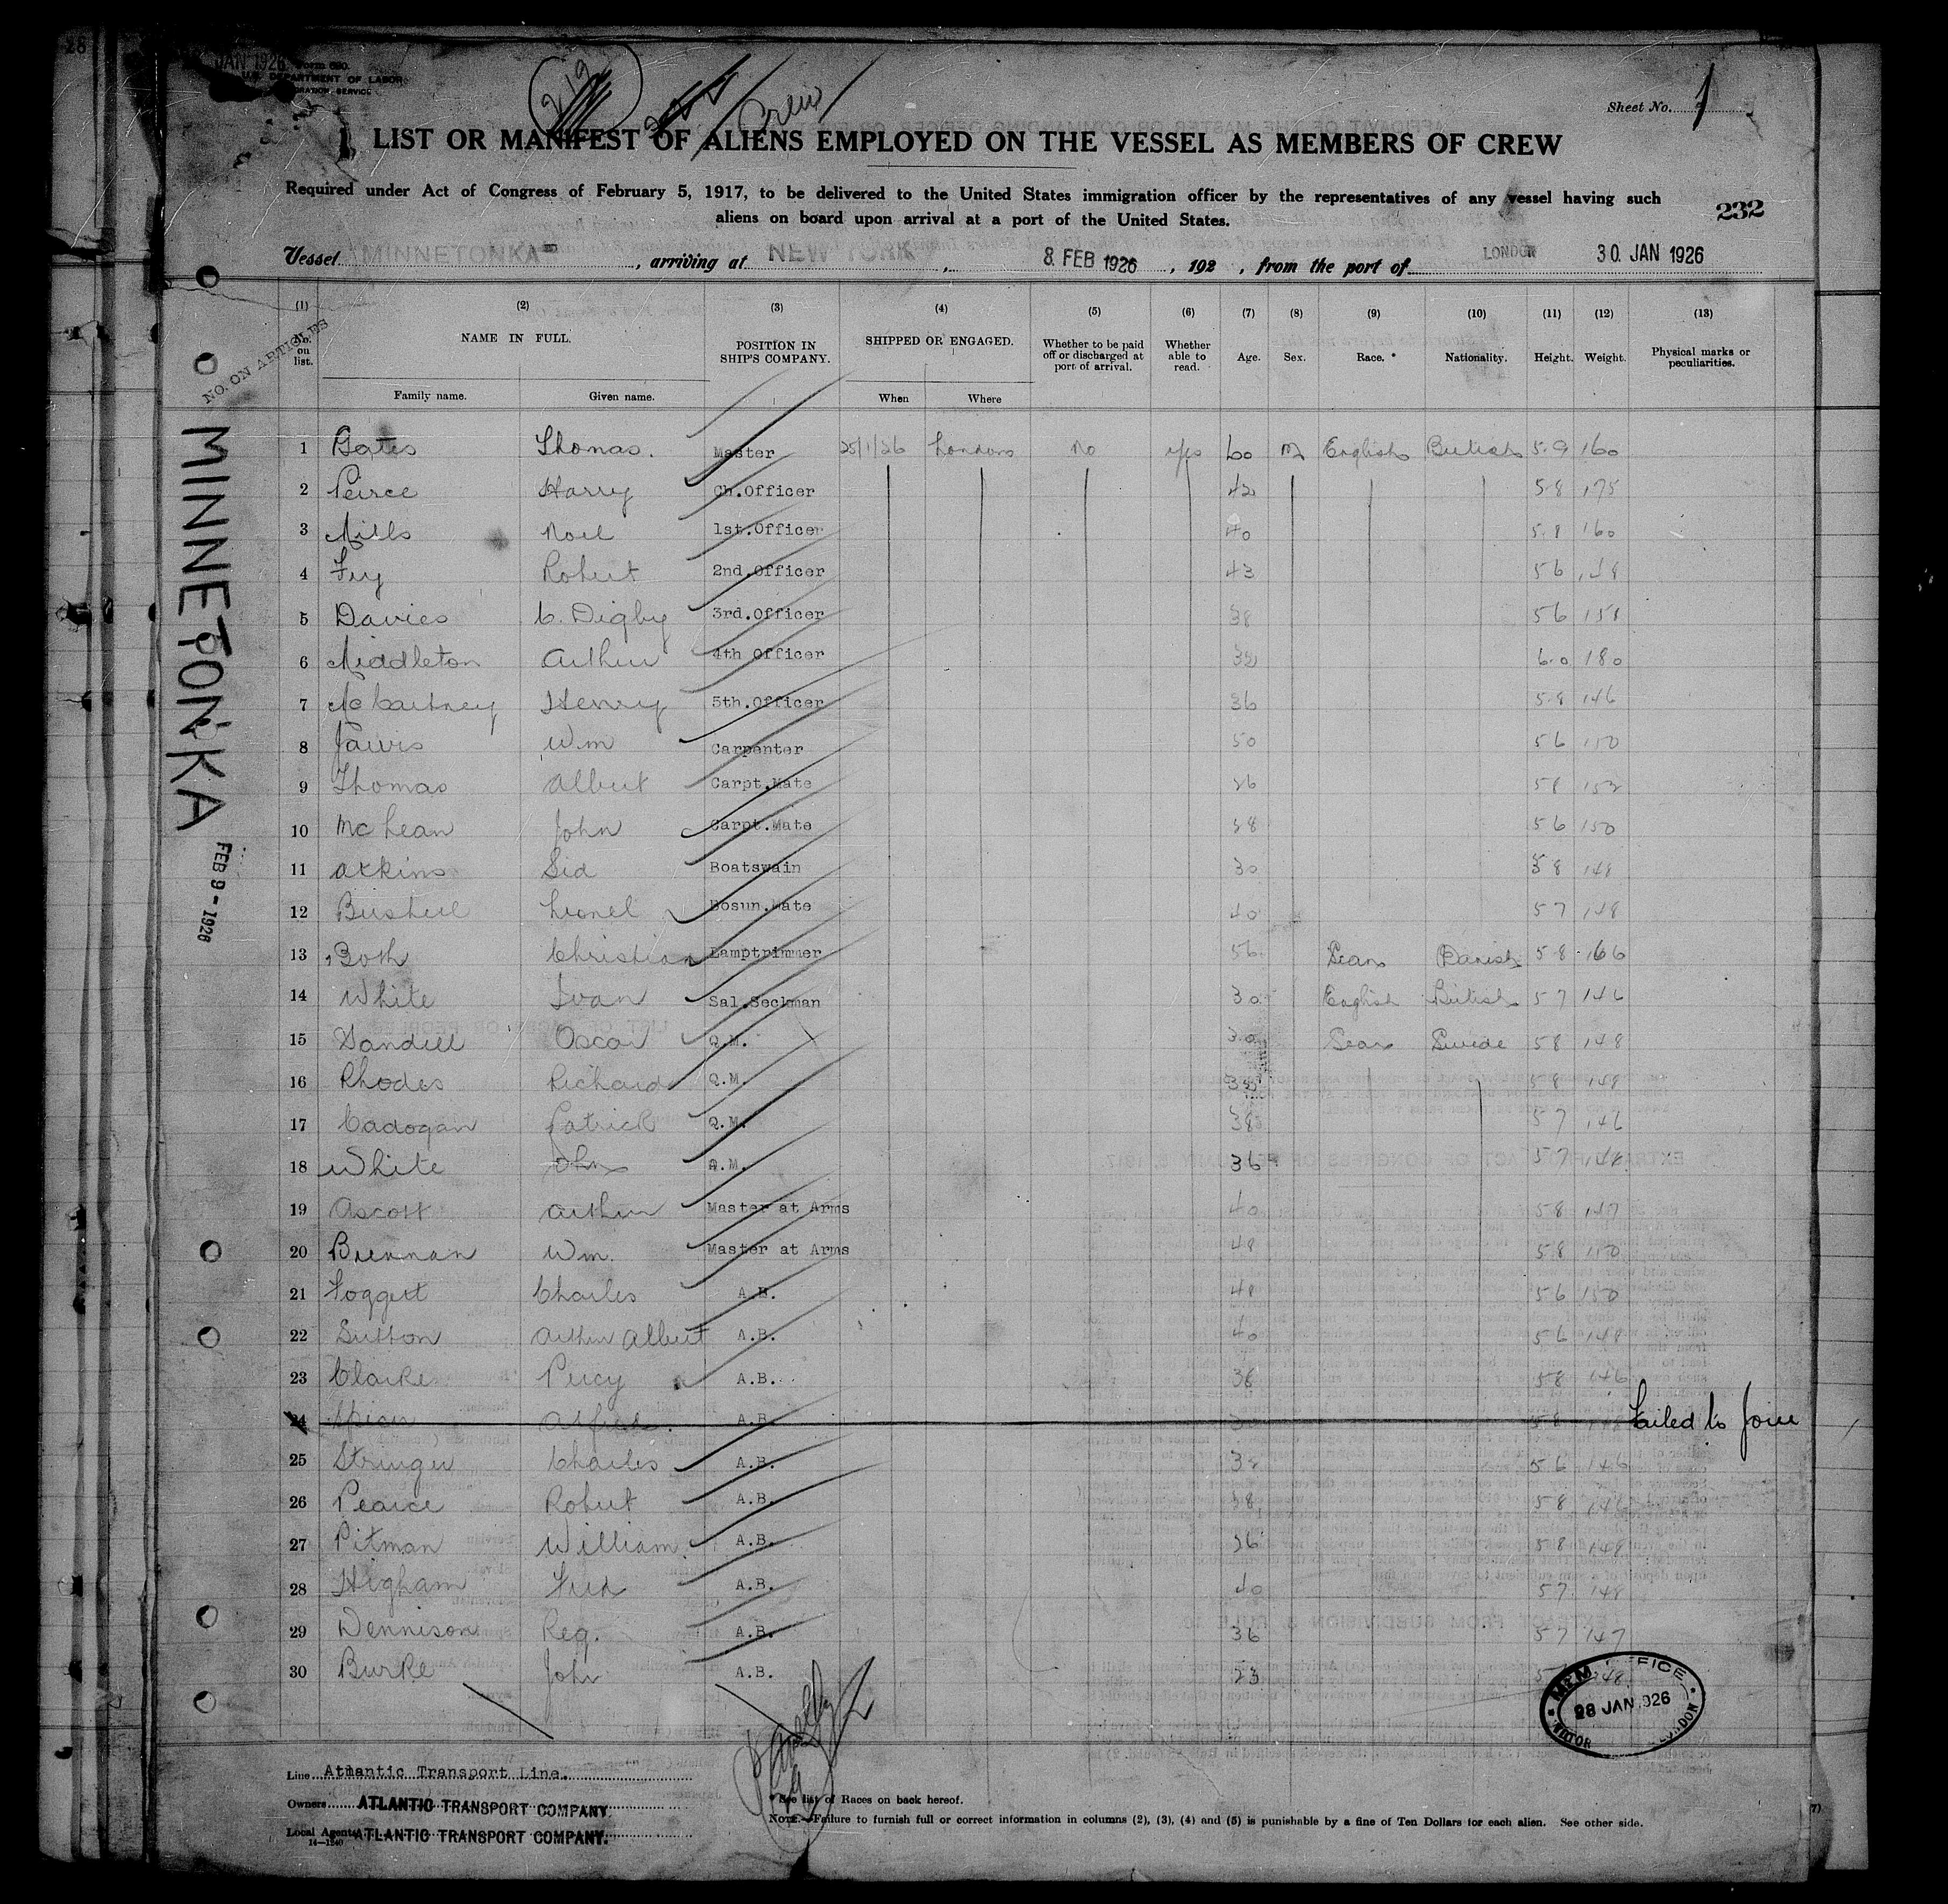 28
JAN 1926
Form 680.
U.S. DEPARTMENT OF LABOR
IMMIGRATION SERVICE
219
Crew
Sheet No. 1
LIST OR MANIFEST OF ALIENS EMPLOYED ON THE VESSEL AS MEMBERS OF CREW
Required under Act of Congress of February 5, 1917, to be delivered to the United States immigration officer by the representatives of any vessel having such
aliens on board upon arrival at a port of the United States.
232
Vessel MINNETONKA, arriving at NEW YORK, 8 FEB 1926, 192 , from the port of LONDON 30 JAN 1926
(1) (2) (3) (4) (5) (6) (7) (8) (9) (10) (11) (12) (13)
NO. ON ARTICLES
No. on list. NAME IN FULL. POSITION IN SHIP'S COMPANY. SHIPPED OR ENGAGED. Whether to be paid off or discharged at port of arrival. Whether able to read. Age. Sex. Race.* Nationality. Height. Weight. Physical marks or peculiarities.
Family name. Given name. When Where
MINNETONKA
FEB 9 - 1926
1 Gates Thomas. Master 25/1/26 London No yes 60 M English British 5.9 160
2 Peirce Harry Ch.Officer 42 5 8 175
3 Mills Noel 1st.Officer 40 5.8 160
4 Fry Robert 2nd.Officer 43 5 6 158
5 Davies C. Digby 3rd.Officer 38 5 6 158
6 Middleton Arthur 4th Officer 6.0 180
7 McCartney Henry 5th.Officer 36 5.8 146
8 Jarvis Wm Carpenter 50 5 6 150
9 Thomas Albert Carpt.Mate 26 5 8 152
10 McLean John Carpt.Mate 38 5 6 150
11 Atkins Sid Boatswain 30 5 8 148
12 Bushell Lionel Bosun.Mate 40 5 7 148
13 Both Christian Lamptrimmer 56 Scan Danish 5 8 166
14 White Ivan Sal.Seckman 30 English British 5 7 146
15 Oscar Q.M. 30 Scan Swede 5 8 148
16 Rhodes Richard Q.M. 5 8 148
17 Cadogan Patrick Q.M. 38 5 7 146
18 White John Q.M. 36 5 7 148
19 Ascott Arthur Master at Arms 40 5 8 147
20 Brennan Wm. Master at Arms 48 5 8 150
21 Foggett Charles A.B. 48 5 6 150
22 Sutton Arthur Albert A.B. 40 5 6 148
23 Clarke Percy A.B. 38 5 8 146
24 Spicer Alfred. A.B. 5 8 Failed to Join
25 Stringer Charles A.B. 5 6 146
26 Pearce Robert A.B. 38 5 8 146
27 Pitman William. A.B. 26 5 8 148
28 Higham Fred A.B. 40 5 7 148
29 Dennison Reg. A.B. 36 5 7 147
30 Burke John A.B. 23 148
28 JAN 1926
LONDON
Line Atlantic Transport Line.
Owners ATLANTIC TRANSPORT COMPANY.
Local Agents ATLANTIC TRANSPORT COMPANY.
14—1240
* See list of Races on back hereof.
NOTE.—Failure to furnish full or correct information in columns (2), (3), (4) and (5) is punishable by a fine of Ten Dollars for each alien. See other side.